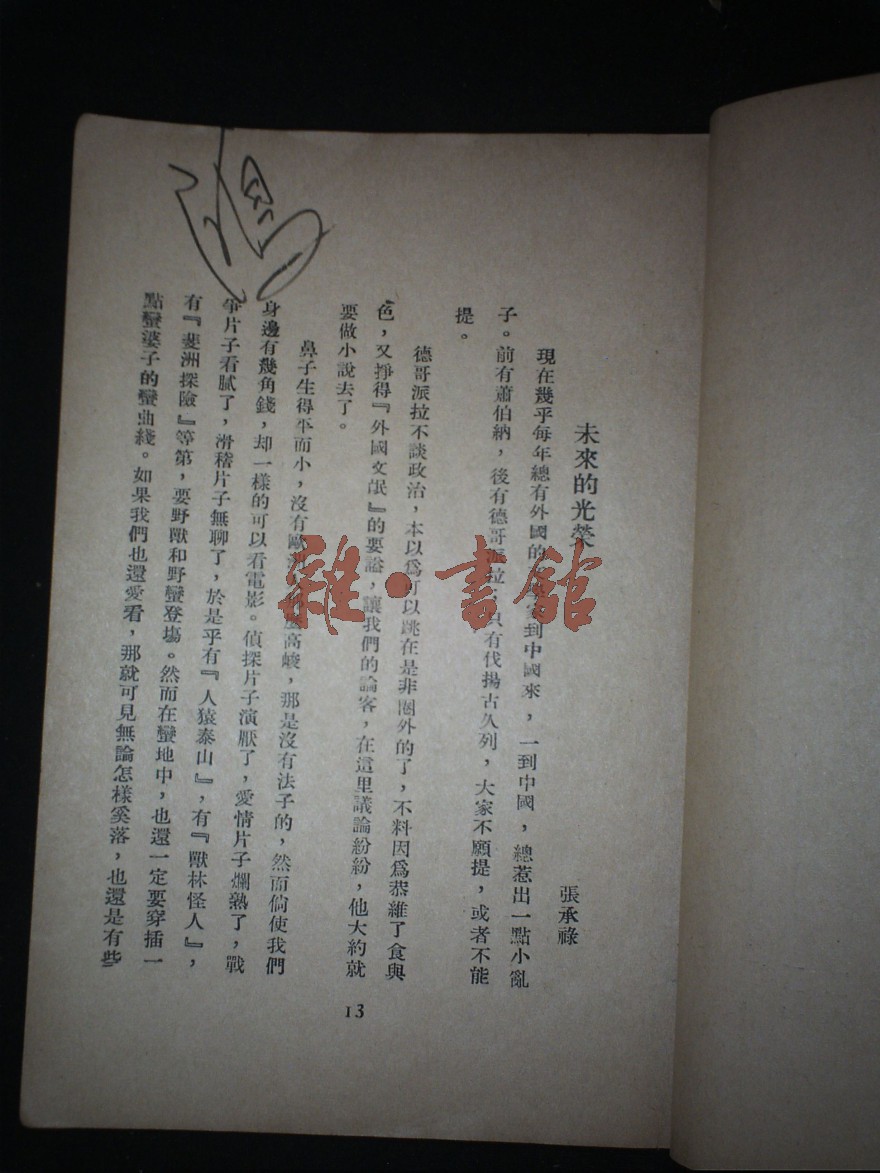 未來的光榮
張承祿
現在幾乎每年總有外國的 到中國來，一到中國，總惹出一點小亂
子。前有蕭伯納，後有德哥派拉；只有伐揚古久列，大家不願提，或者不能
提。
德哥派拉不談政治，本以爲可以跳在是非圈外的了，不料因爲恭維了食與
色，又掙得『外國文氓』的要謚，讓我們的論客，在這里議論紛紛，他大約就
要做小說去了。
鼻子生得平而小，沒有歐洲 高峻，那是沒有法子的，然而倘使我們
身邊有幾角錢，却一樣的可以看電影。偵探片子演厭了，愛情片子爛熟了，戰
爭片子看膩了，滑稽片子無聊了，於是乎有『人猿泰山』，有『獸林怪人』，
有『斐洲探險』等第，要野獸和野蠻登塲。然而在蠻地中，也還一定要穿插一
點蠻婆子的蠻曲綫。如果我們也還愛看，那就可見無論怎樣奚落，也還是有些
13
雜·書館